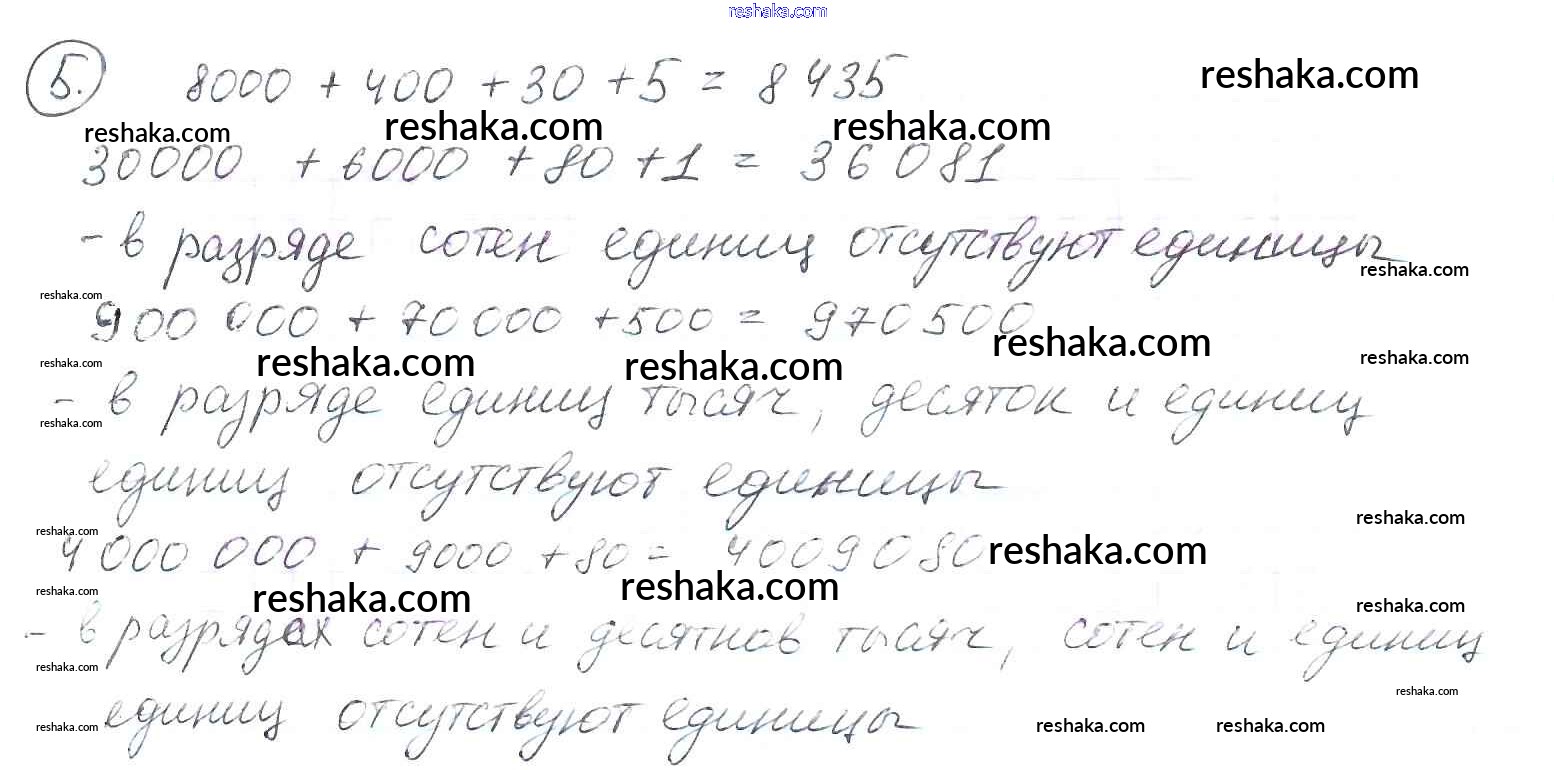 reshaka.com
5. 8000 + 400 + 30 + 5 = 8435
reshaka.com
reshaka.com reshaka.com reshaka.com
30000 + 6000 + 80 + 1 = 36081
- в разряде сотен единиц отсутствуют единицы
reshaka.com
reshaka.com
900 000 + 70 000 + 500 = 970 500
reshaka.com
reshaka.com reshaka.com reshaka.com reshaka.com
- в разряде единиц тысяч, десяток и единиц
reshaka.com
единиц отсутствуют единицы
reshaka.com
reshaka.com
4 000 000 + 9000 + 80 = 4009080
reshaka.com
reshaka.com reshaka.com reshaka.com
reshaka.com
- в разрядах сотен и десятков тысяч, сотен и единиц
reshaka.com
reshaka.com
единиц отсутствуют единицы
reshaka.com reshaka.com reshaka.com